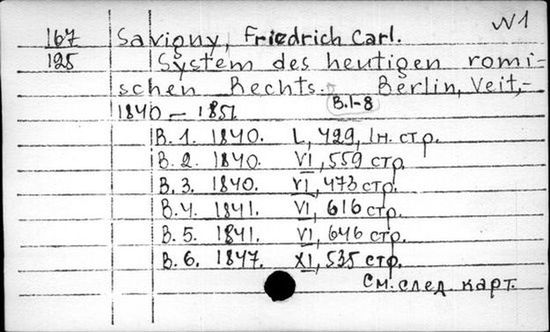 N1
167 Savigny, Friedrich Carl.
125 System des heutigen romi-
schen Rechts. Berlin, Veit,-
1840 – 1851 B.1-8
B. 1. 1840. L, 429, 1н. стр.
B. 2. 1840. VI, 559 стр.
B. 3. 1840. VI, 473 стр.
B. 4. 1841. VI, 616 стр.
B. 5. 1841. VI, 646 стр.
B. 6. 1847. XI, 535 стр.
См. след. карт.